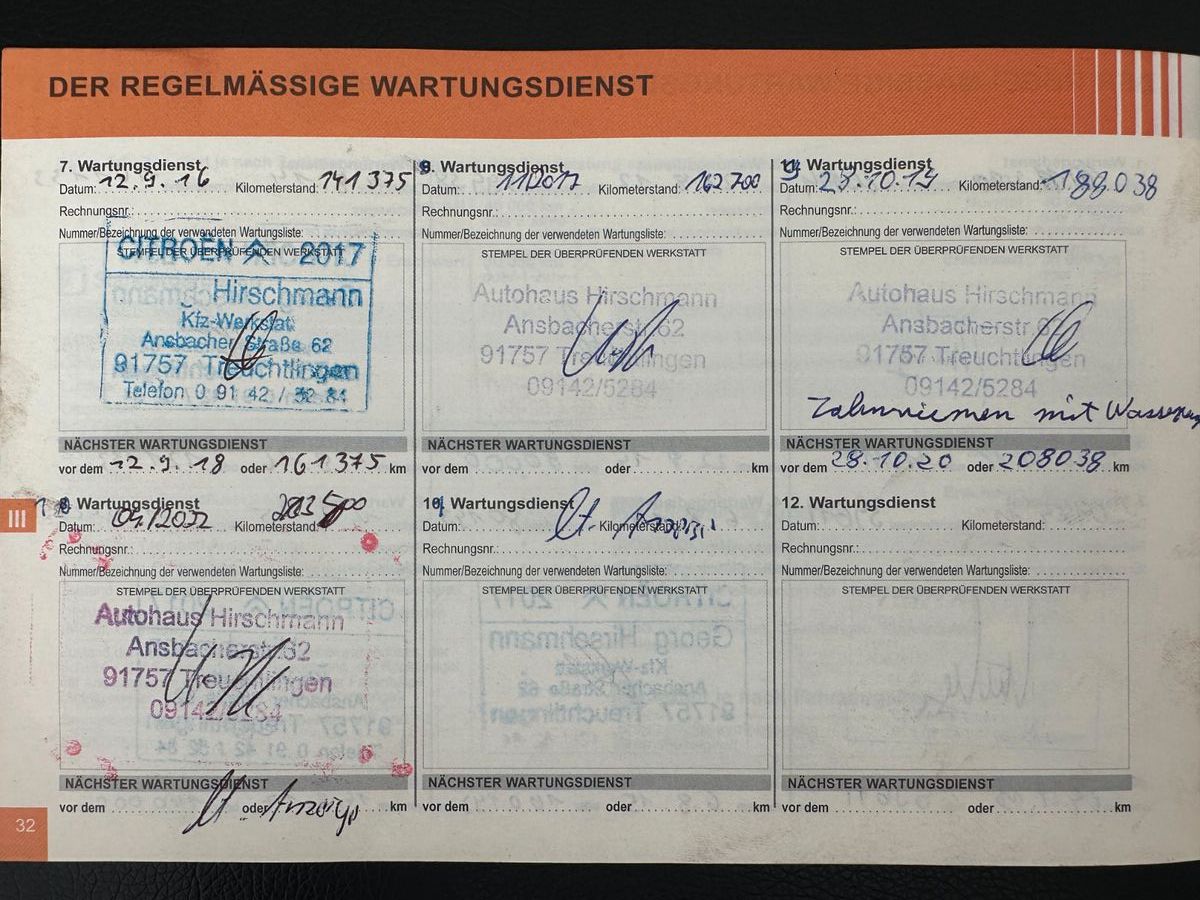 DER REGELMÄSSIGE WARTUNGSDIENST
7. Wartungsdienst
Datum: 12.9.16 Kilometerstand: 141 375
Rechnungsnr.:
Nummer/Bezeichnung der verwendeten Wartungsliste:
STEMPEL DER ÜBERPRÜFENDEN WERKSTATT
CITROËN 2017
Hirschmann
Kfz-Werkstatt
Ansbacher Straße 62
91757 Treuchtlingen
Telefon 0 91 42 / 52 84
NÄCHSTER WARTUNGSDIENST
vor dem 12.9.18 oder 161375 km
8. Wartungsdienst
Datum: 11/2017 Kilometerstand: 162700
Rechnungsnr.:
Nummer/Bezeichnung der verwendeten Wartungsliste:
STEMPEL DER ÜBERPRÜFENDEN WERKSTATT
Autohaus Hirschmann
Ansbacherstr.62
91757 Treuchtlingen
09142/5284
NÄCHSTER WARTUNGSDIENST
vor dem oder km
9. Wartungsdienst
Datum: 28.10.19 Kilometerstand: 188.038
Rechnungsnr.:
Nummer/Bezeichnung der verwendeten Wartungsliste:
STEMPEL DER ÜBERPRÜFENDEN WERKSTATT
Autohaus Hirschmann
Ansbacherstr.62
91757 Treuchtlingen
09142/5284
Zahnriemen mit
NÄCHSTER WARTUNGSDIENST
vor dem 28.10.20 oder 208038 km
III
Wartungsdienst
Datum: 04/2022 Kilometerstand:
Rechnungsnr.:
Nummer/Bezeichnung der verwendeten Wartungsliste:
STEMPEL DER ÜBERPRÜFENDEN WERKSTATT
Autohaus Hirschmann
Ansbacherstr.62
91757 Treuchtlingen
09142/5284
NÄCHSTER WARTUNGSDIENST
vor dem lt. oder Anzeige km
Wartungsdienst
Datum: lt. Kilometerstand:
Rechnungsnr.:
Nummer/Bezeichnung der verwendeten Wartungsliste:
STEMPEL DER ÜBERPRÜFENDEN WERKSTATT
NÄCHSTER WARTUNGSDIENST
vor dem oder km
12. Wartungsdienst
Datum: Kilometerstand:
Rechnungsnr.:
Nummer/Bezeichnung der verwendeten Wartungsliste:
STEMPEL DER ÜBERPRÜFENDEN WERKSTATT
NÄCHSTER WARTUNGSDIENST
vor dem oder km
32